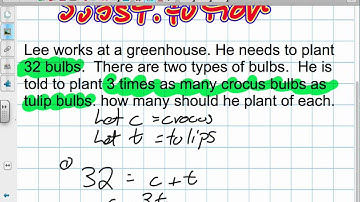 SUBSTITUTION
Lee works at a greenhouse. He needs to plant
32 bulbs. There are two types of bulbs. He is
told to plant 3 times as many crocus bulbs as
tulip bulbs. how many should he plant of each.
Let c = crocus
Let t = tulips
① 32 = c + t
c = 3t